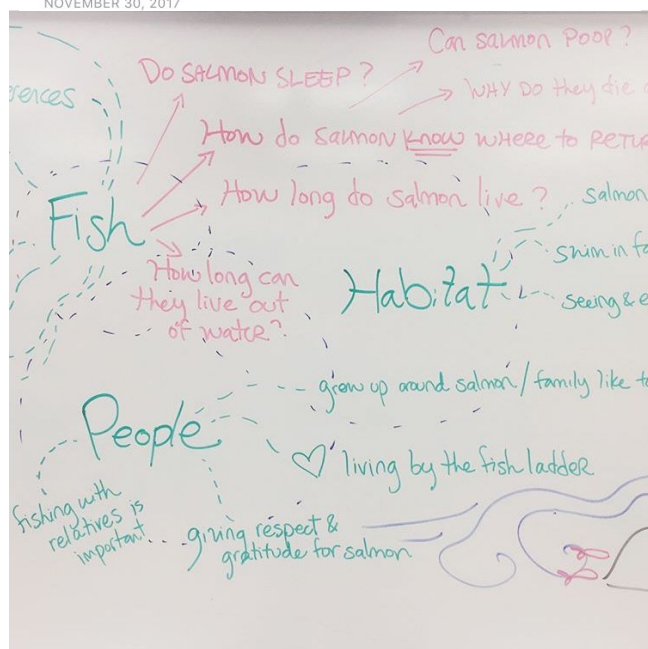 NOVEMBER 30, 2017
Can salmon POOP?
DO SALMON SLEEP?
WHY DO they die
How do salmon know WHERE to
How long do salmon live?
Fish
salmon
swim in
How long can
they live out
of water?
Habitat
seeing &
grew up around salmon/family like
People
♡ living by the fish ladder
fishing with
relatives is
important
giving respect &
gratitude for salmon